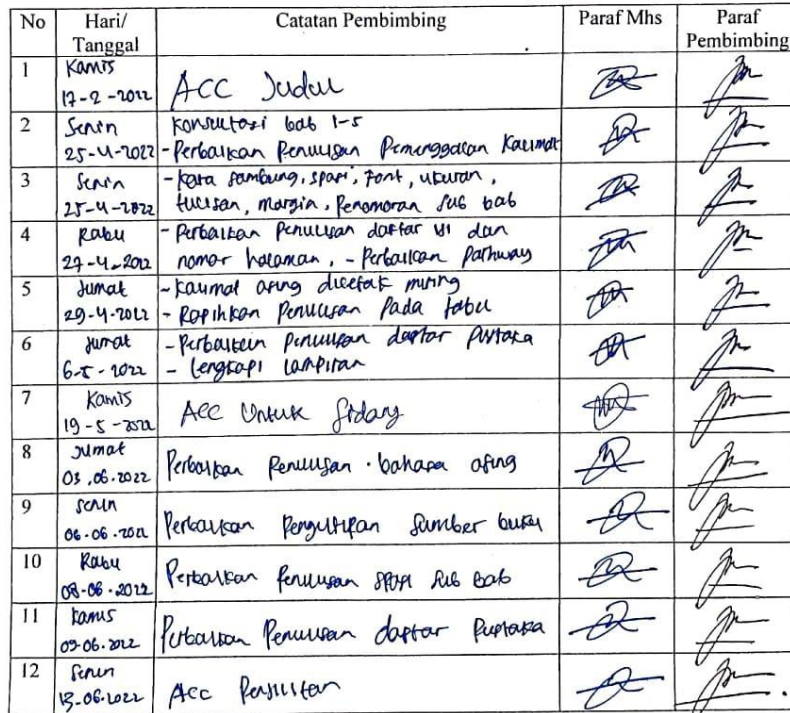 No Hari/ Tanggal Catatan Pembimbing Paraf Mhs Paraf Pembimbing
1 Kamis 17-2-2022 ACC Judul
2 Senin 25-4-2022 Konsultasi bab 1-5
- Perbaikan Penulisan Pemenggalan Kalimat
3 Senin 25-4-2022 - Kata sambung, spasi, font, ukuran,
tulisan, margin, Penomoran sub bab
4 Rabu 27-4-2022 - Perbaikan Penulisan daftar isi dan
nomor halaman, - Perbaikan Pathway
5 Jumat 29-4-2022 - Kalimat asing dicetak miring
- Rapihkan Penulisan Pada tabel
6 Jumat 6-5-2022 - Perbaikan penulisan daftar Pustaka
- lengkapi lampiran
7 Kamis 19-5-2022 ACC Untuk Sidang
8 Jumat 03.06.2022 Perbaikan Penulisan bahasa asing
9 Senin 06.06.2022 Perbaikan Pengutipan Sumber buku
10 Rabu 08-06-2022 Perbaikan Penulisan spasi sub bab
11 Kamis 09-06-2022 Perbaikan Penulisan daftar Pustaka
12 Senin 13-06-2022 Acc